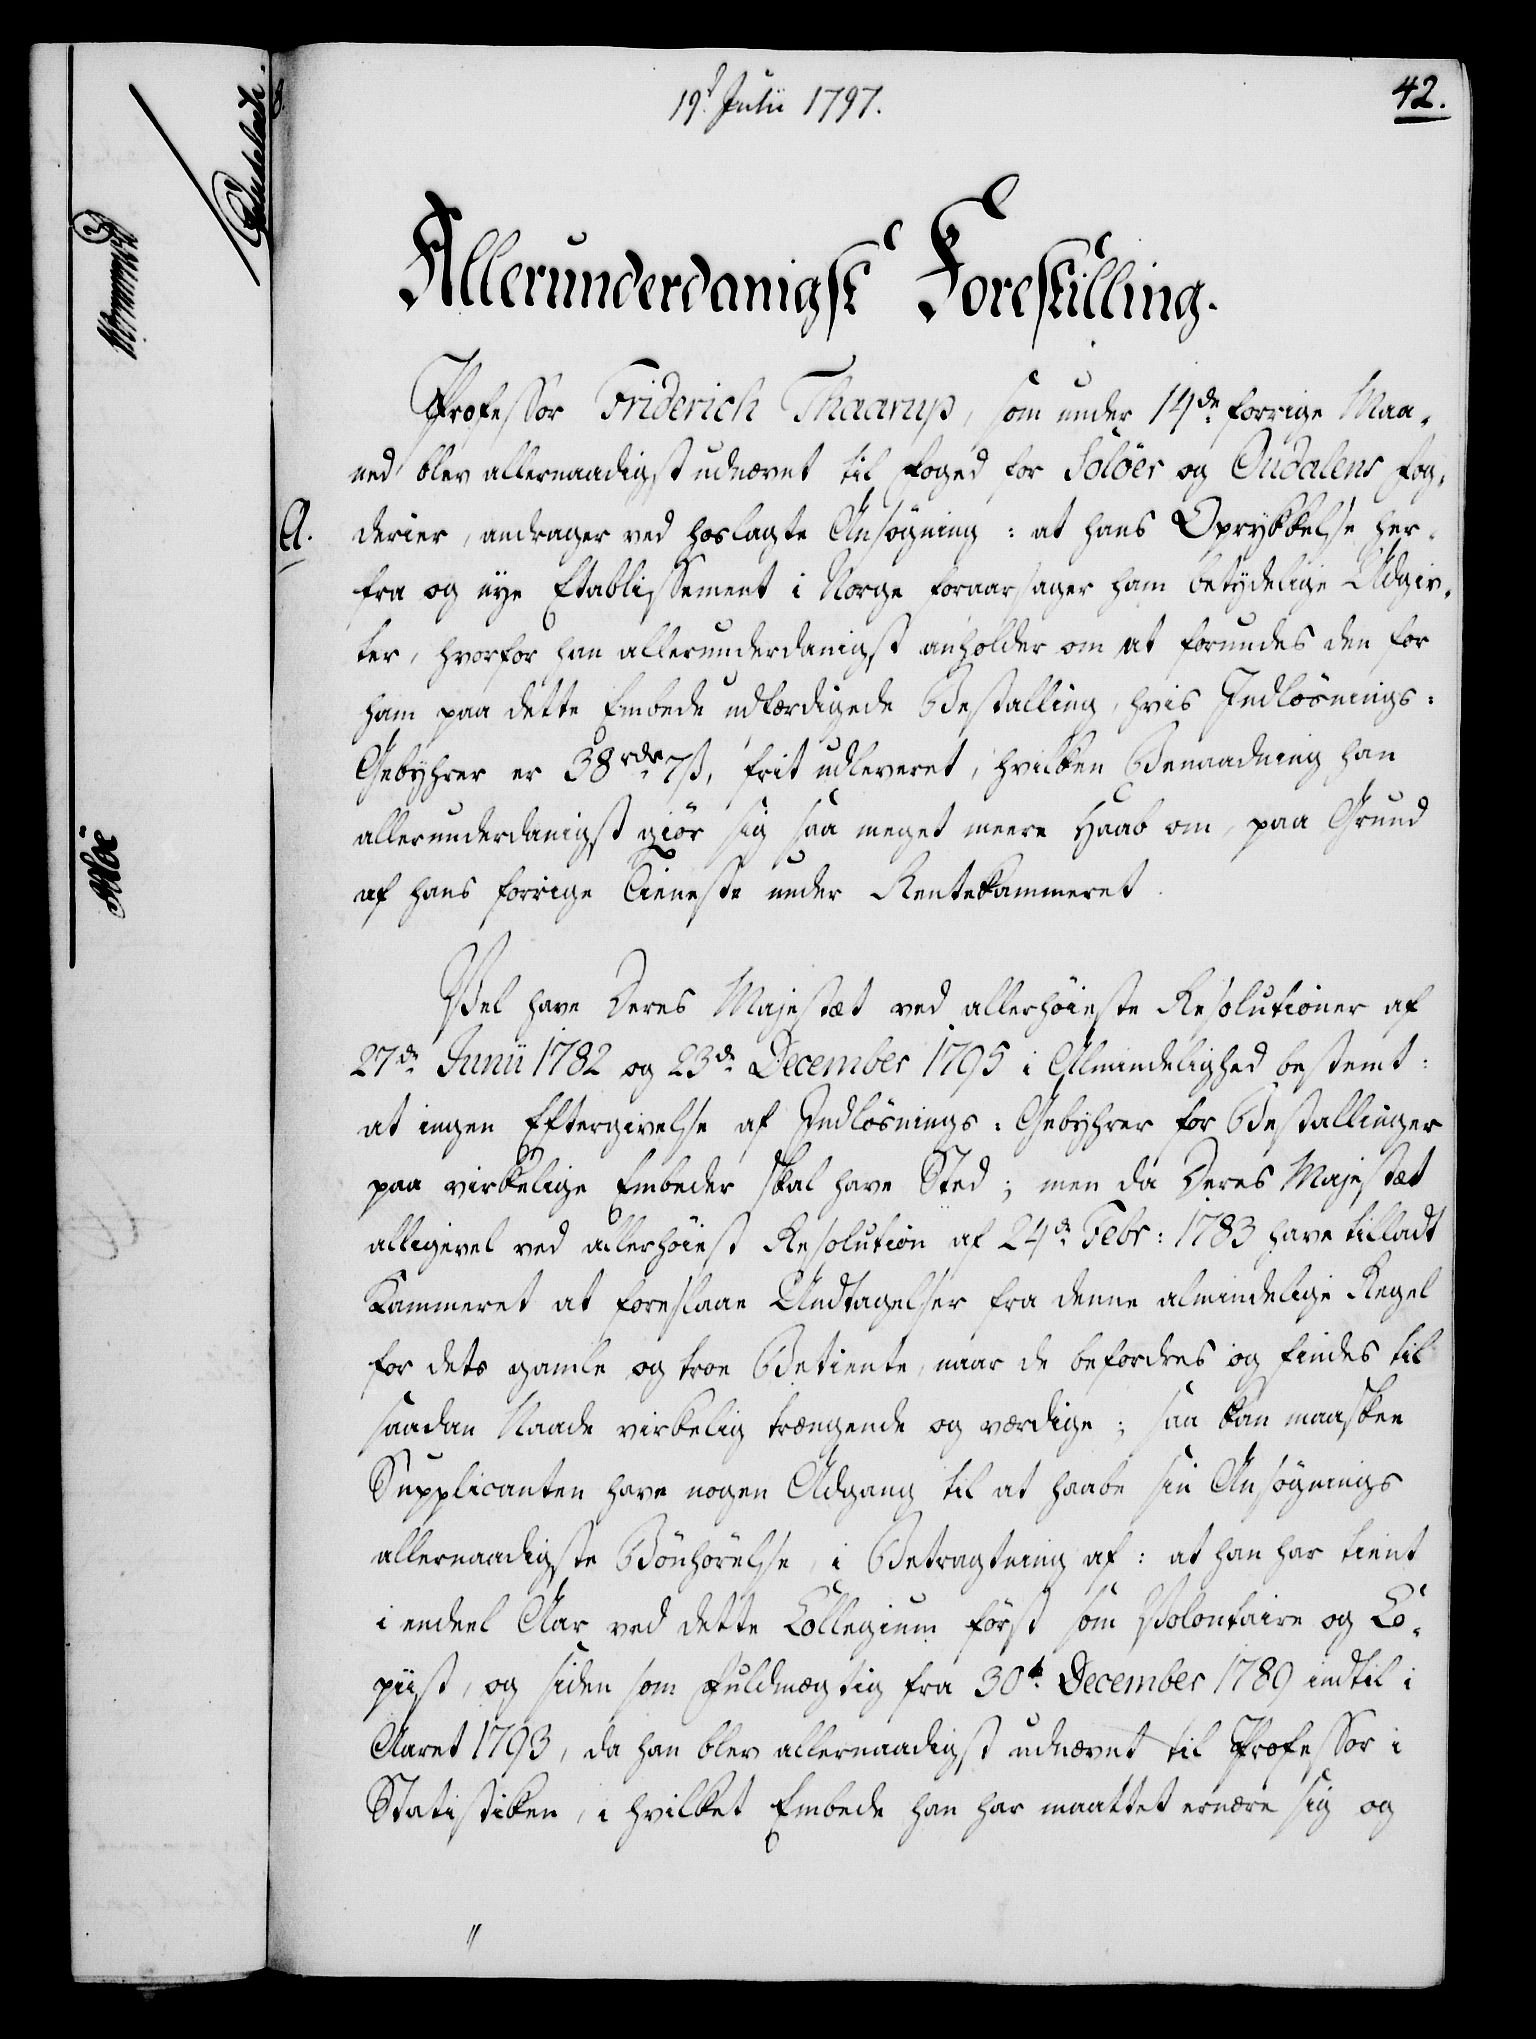 19d. Julii 1797.
42.
Allerunderdanigst Forestilling.
Professor Friderich Thaarup, som under 14de forrige Maa-
ned blev allernaadigst udnævnt til Foged for Soløer og Oudalens Fog-
A.
derier, andrager ved hoslagte Ansøgning: at hans Oprykkelse her-
fra og nye Etablissement i Norge foraarsager ham betydelige Udgiv-
ter, hvorfor han allerunderdanigst anholder om at forundes den for
ham paa dette Embede udfærdigede Bestalling, hvis Indløsnings-
Gebyhrer er 38 rdr 7 ß, frit udleveret, hvilken Benaadning han
allerunderdanigst giør sig saa meget meere Haab om, paa Grund
af hans forrige Tieneste under Rentekammeret.
Vel have Deres Majestæt ved allerhöieste Resolutioner af
27de Junii 1782 og 23de December 1795 i Almindelighed bestemt:
at ingen Eftergivelse af Indløsnings-Gebyhrer for Bestallinger
paa virkelige Embeder skal have Sted; men da Deres Majestæt
alligevel ved allerhöiest Resolution af 24de Febr: 1783 have tilladt
Kammeret at foreslaae Undtagelser fra denne almindelige Regel
for dets gamle og troe Betiente, naar de befordres og findes til
saadan Naade virkelig trængende og værdige; saa kan maaskee
Supplicanten have nogen Adgang til at haabe sin Ansøgnings
allernaadigste Bönhörelse, i Betragtning af: at han har tient
i endeel Aar ved dette Collegium först som Volontaire og Co-
piist, og siden som Fuldmægtig fra 30te December 1789 indtil i
Aaret 1793, da han blev allernaadigst udnævnt til Professor i
Statistiken, i hvilket Embede han har maattet ernære sig og